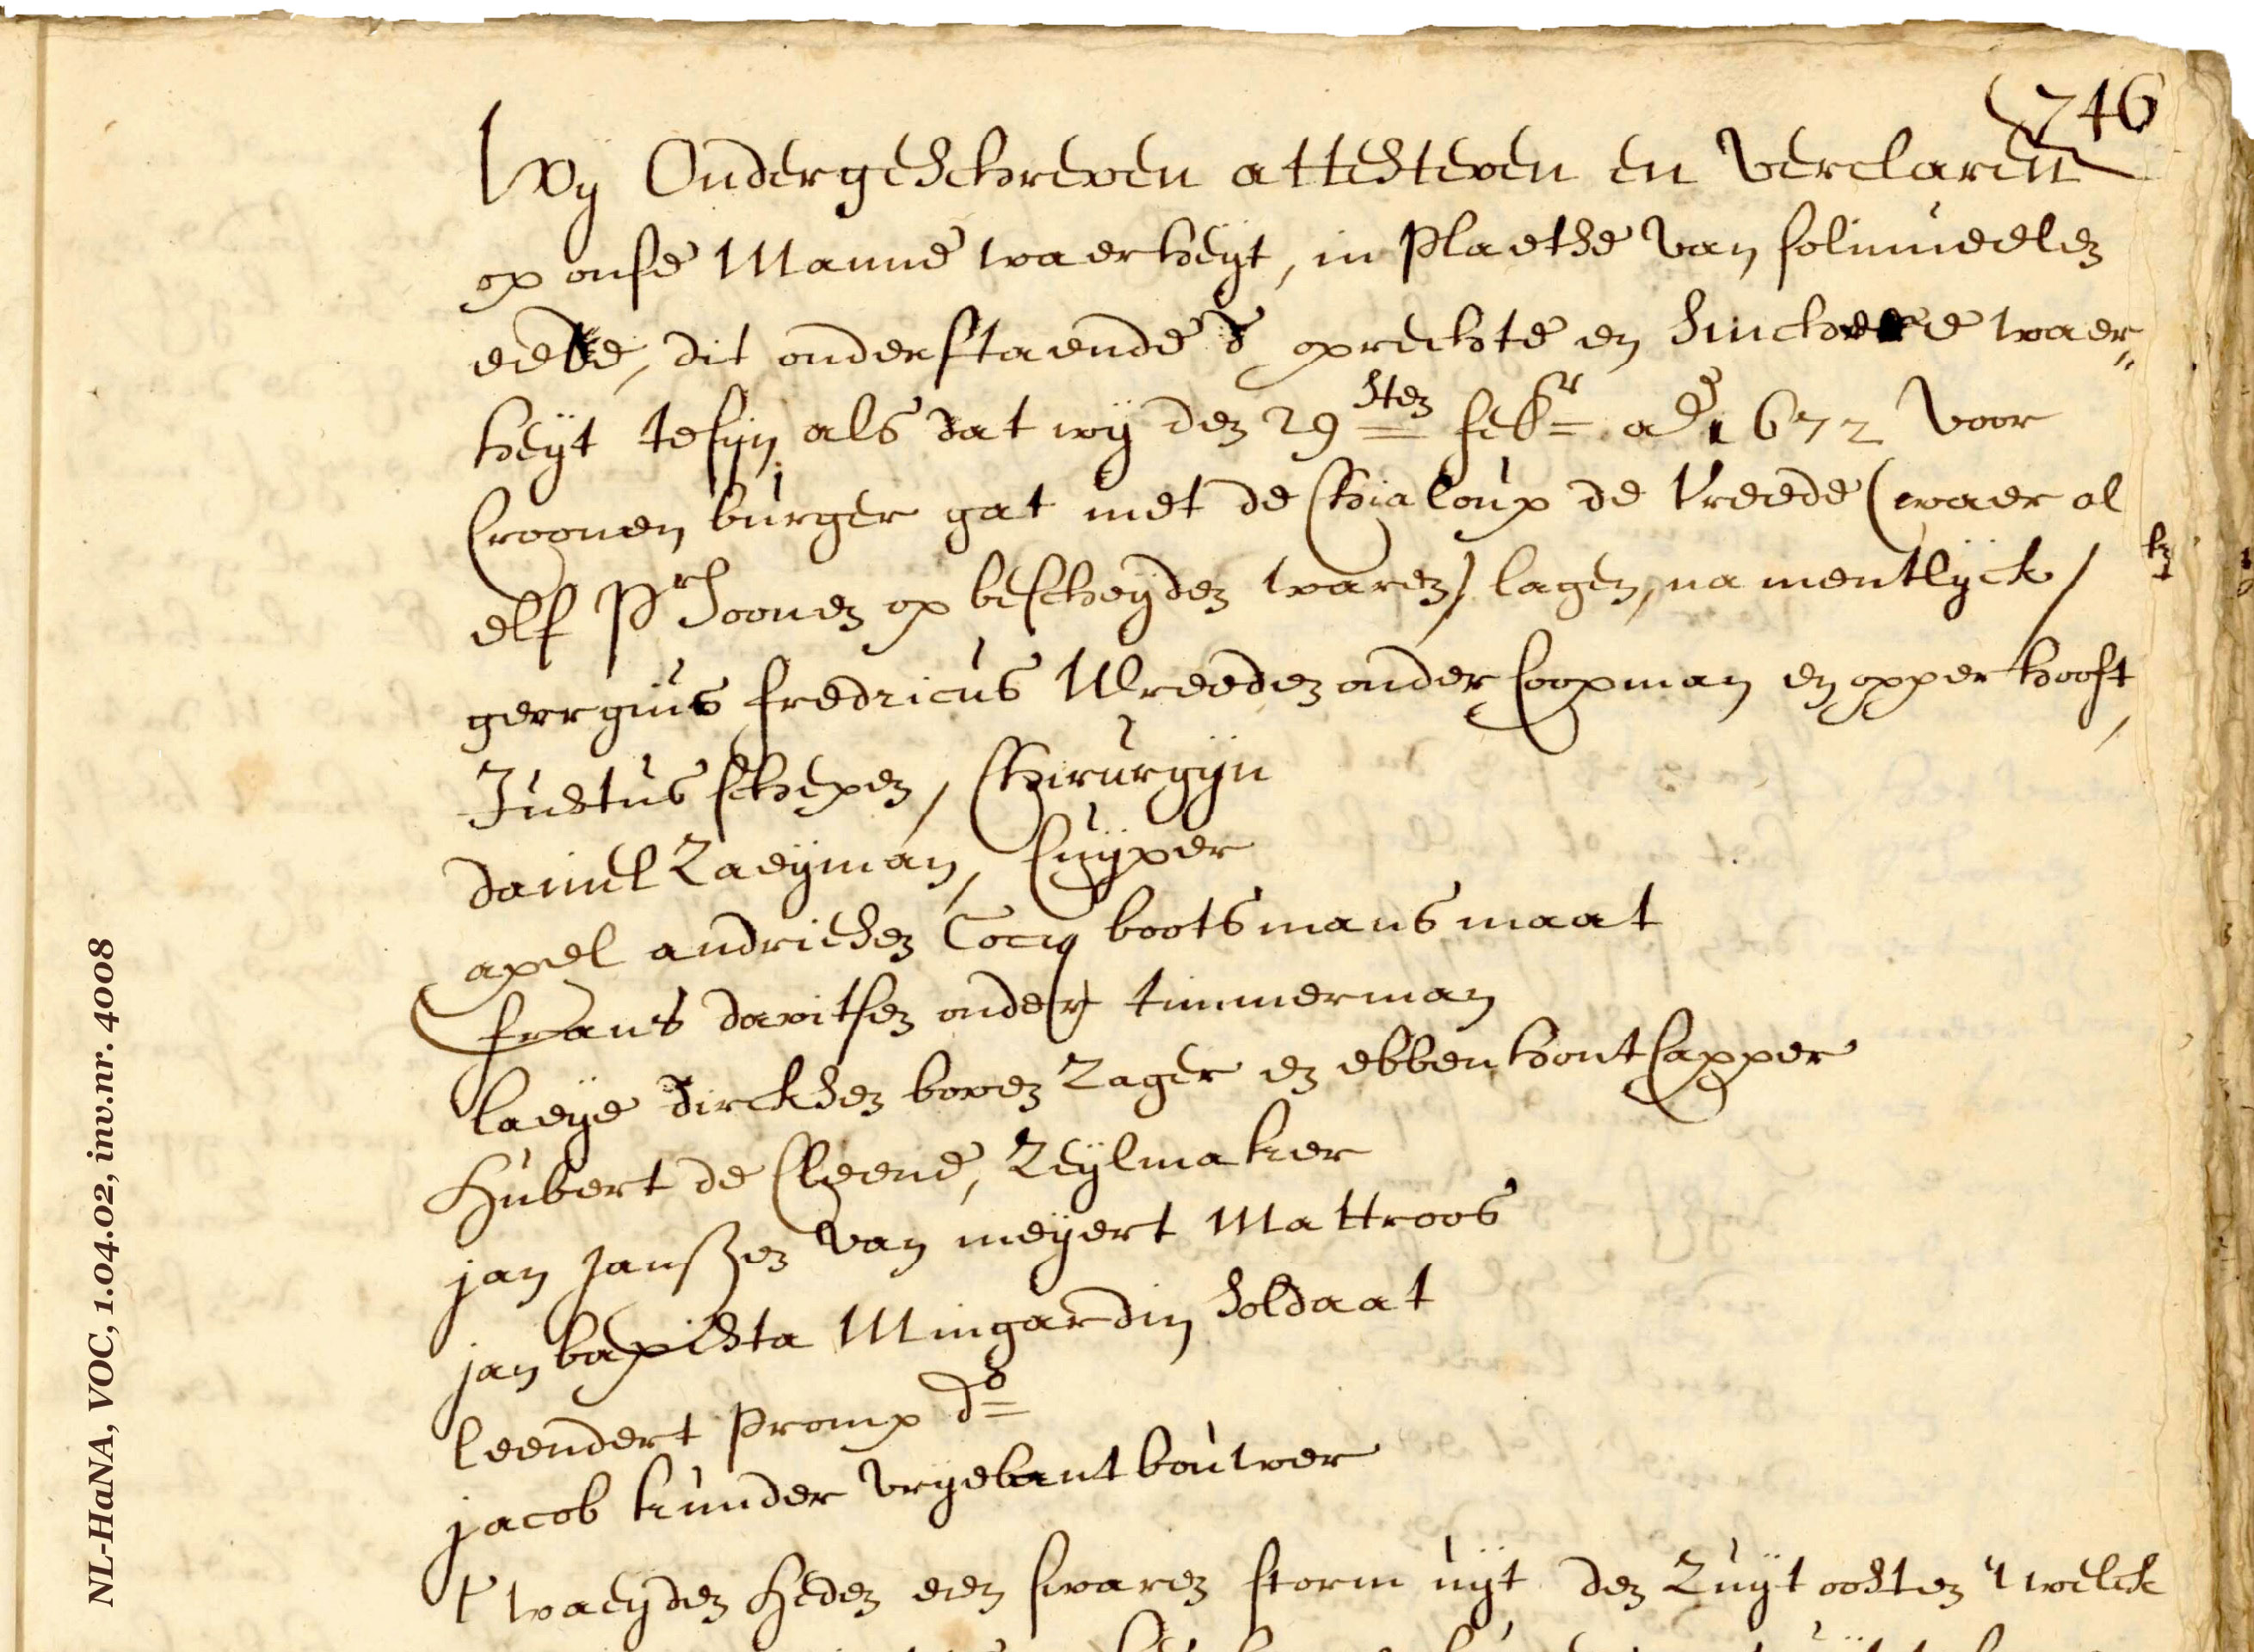 746
Wy Ondergeschreven attesteren en Verclaren
op onse Manne waerheyt, in Plaetse van solmueelen
eede, dit onderstaende d' oprechte en sinchere waer„
heyt tesyn, als dat wy den 29sten febr. ao 1672 Voor
Croonenburger gat met de Chialoup de Vreede (waer al
elf Prsoonen op bescheyden waren) lagen, namentlyck /
georgius fredricus Wreeden ondercoopman en opperhooft,
Justus schepen, Chirurgyn
daniel Zaeyman, Cuyper
axel andriesen Cocq bootsmansmaat
frans davitsen onder timmerman
laeye dircksen boven Zager en ebbenhontCapper
Hubert de Cleene, Zeylmaker
jan Janssen van meyert Mattroos
jan bapista Mingardin soldaat
leendert Promp do
jacob kunder vryelantbouwer
t' waeyden heden een swaren storm uyt den Zuyt oosten 't welck
NL-HaNA, VOC, 1.04.02, inv.nr. 4008